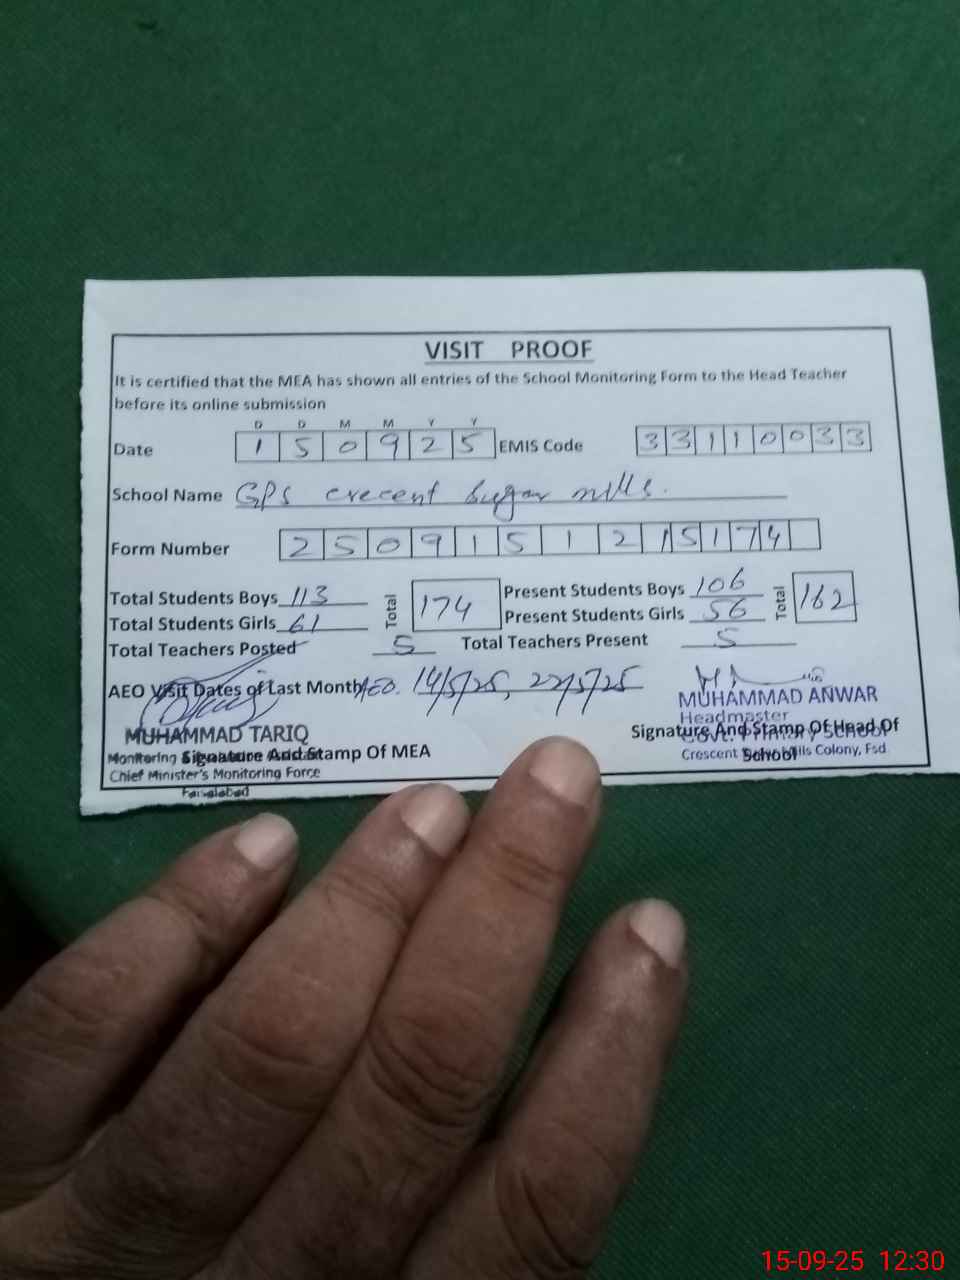 VISIT PROOF
It is certified that the MEA has shown all entries of the School Monitoring Form to the Head Teacher
before its online submission
D D M M Y Y
Date 1 5 0 9 2 5 EMIS Code 3 3 1 1 0 0 3 3
School Name GPS crecent Sugar mills.
Form Number 2 5 0 9 1 5 1 2 1 5 1 7 4
Total Students Boys 113 Total 174 Present Students Boys 106 Total 162
Total Students Girls 61 Present Students Girls 56
Total Teachers Posted 5 Total Teachers Present 5
AEO Visit Dates of Last Month AEO. 14/5/25, 22/5/25
MUHAMMAD TARIQ
Monitoring
Signature And Stamp Of MEA
Chief Minister's Monitoring Force
Faisalabad
MUHAMMAD ANWAR
Headmaster
Govt. Primary School
Signature And Stamp Of Head Of
School
Crescent Mills Colony, Fsd
15-09-25 12:30